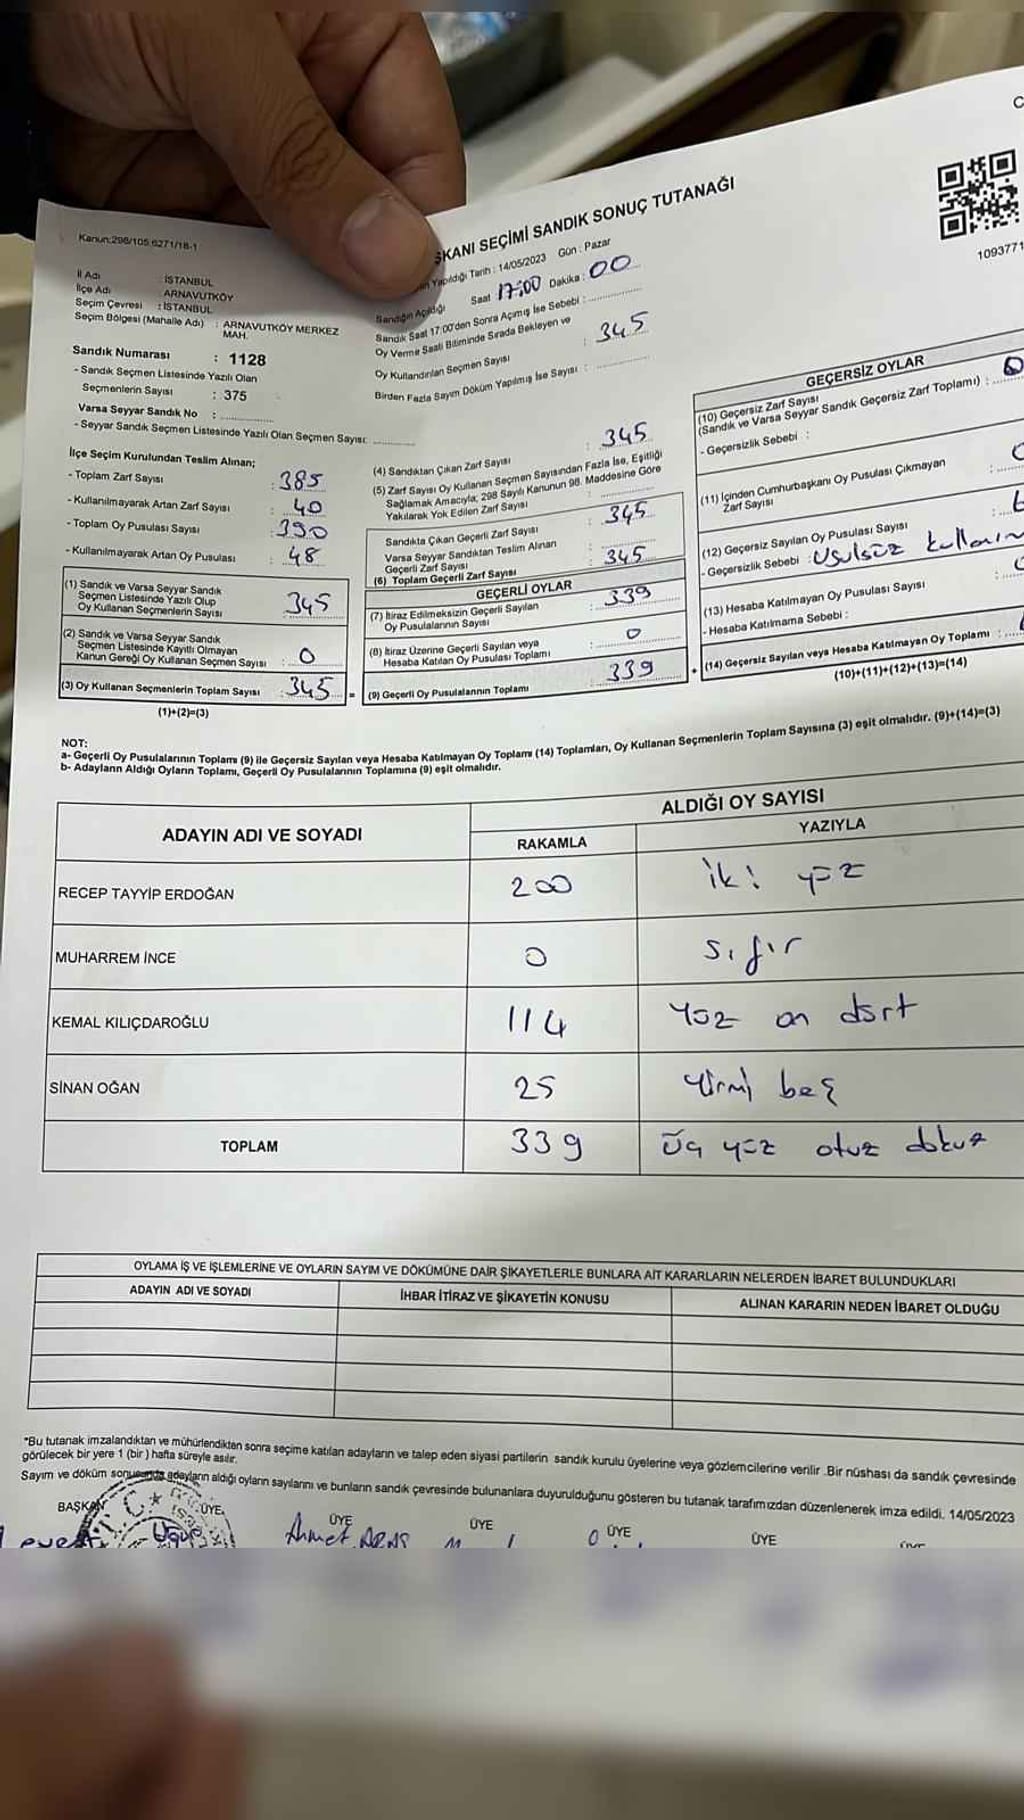 ŞKANI SEÇİMİ SANDIK SONUÇ TUTANAĞI
Kanun:298/105,6271/18-1
1093771
İl Adı : İSTANBUL
İlçe Adı : ARNAVUTKÖY
Seçim Çevresi : İSTANBUL
Seçim Bölgesi (Mahalle Adı) : ARNAVUTKÖY MERKEZ MAH.
Sandık Numarası : 1128
- Sandık Seçmen Listesinde Yazılı Olan
Seçmenlerin Sayısı : 375
Varsa Seyyar Sandık No :
- Seyyar Sandık Seçmen Listesinde Yazılı Olan Seçmen Sayısı:
İlçe Seçim Kurulundan Teslim Alınan;
- Toplam Zarf Sayısı : 385
- Kullanılmayarak Artan Zarf Sayısı : 40
- Toplam Oy Pusulası Sayısı : 390
- Kullanılmayarak Artan Oy Pusulası : 48
(1) Sandık ve Varsa Seyyar Sandık
Seçmen Listesinde Yazılı Olup
Oy Kullanan Seçmenlerin Sayısı : 345
(2) Sandık ve Varsa Seyyar Sandık
Seçmen Listesinde Kayıtlı Olmayan
Kanun Gereği Oy Kullanan Seçmen Sayısı : 0
(3) Oy Kullanan Seçmenlerin Toplam Sayısı : 345 =
(1)+(2)=(3)
Yapıldığı Tarih : 14/05/2023 Gün : Pazar
Sandığın Açıldığı Saat 17:00 Dakika : 00
Sandık Saat 17:00'den Sonra Açımış İse Sebebi :
Oy Verme Saati Bitiminde Sırada Bekleyen ve
Oy Kullandırılan Seçmen Sayısı : 345
Birden Fazla Sayım Döküm Yapılmış İse Sayısı :
(4) Sandıktan Çıkan Zarf Sayısı : 345
(5) Zarf Sayısı Oy Kullanan Seçmen Sayısından Fazla İse, Eşitliği
Sağlamak Amacıyla; 298 Sayılı Kanunun 98. Maddesine Göre
Yakılarak Yok Edilen Zarf Sayısı :
Sandıkta Çıkan Geçerli Zarf Sayısı : 345
Varsa Seyyar Sandıktan Teslim Alınan
Geçerli Zarf Sayısı :
(6) Toplam Geçerli Zarf Sayısı : 345
GEÇERLİ OYLAR
(7) İtiraz Edilmeksizin Geçerli Sayılan
Oy Pusulalarının Sayısı : 339
(8) İtiraz Üzerine Geçerli Sayılan veya
Hesaba Katılan Oy Pusulası Toplamı : 0
(9) Geçerli Oy Pusulalarının Toplamı : 339 +
GEÇERSİZ OYLAR
(10) Geçersiz Zarf Sayısı
(Sandık ve Varsa Seyyar Sandık Geçersiz Zarf Toplamı) :
- Geçersizlik Sebebi :
(11) İçinden Cumhurbaşkanı Oy Pusulası Çıkmayan
Zarf Sayısı :
(12) Geçersiz Sayılan Oy Pusulası Sayısı :
- Geçersizlik Sebebi : Usulsüz
(13) Hesaba Katılmayan Oy Pusulası Sayısı :
- Hesaba Katılmama Sebebi :
(14) Geçersiz Sayılan veya Hesaba Katılmayan Oy Toplamı :
(10)+(11)+(12)+(13)=(14)
NOT:
a- Geçerli Oy Pusulalarının Toplamı (9) ile Geçersiz Sayılan veya Hesaba Katılmayan Oy Toplamı (14) Toplamları, Oy Kullanan Seçmenlerin Toplam Sayısına (3) eşit olmalıdır. (9)+(14)=(3)
b- Adayların Aldığı Oyların Toplamı, Geçerli Oy Pusulalarının Toplamına (9) eşit olmalıdır.
ADAYIN ADI VE SOYADI ALDIĞI OY SAYISI
RAKAMLA YAZIYLA
RECEP TAYYİP ERDOĞAN 200 iki yüz
MUHARREM İNCE 0 sıfır
KEMAL KILIÇDAROĞLU 114 Yüz on dört
SİNAN OĞAN 25 Yirmi beş
TOPLAM 339 Üç yüz otuz dokuz
OYLAMA İŞ VE İŞLEMLERİNE VE OYLARIN SAYIM VE DÖKÜMÜNE DAİR ŞİKAYETLERLE BUNLARA AİT KARARLARIN NELERDEN İBARET BULUNDUKLARI
ADAYIN ADI VE SOYADI İHBAR İTİRAZ VE ŞİKAYETİN KONUSU ALINAN KARARIN NEDEN İBARET OLDUĞU
*Bu tutanak imzalandıktan ve mühürlendikten sonra seçime katılan adayların ve talep eden siyasi partilerin sandık kurulu üyelerine veya gözlemcilerine verilir .Bir nüshası da sandık çevresinde
görülecek bir yere 1 (bir ) hafta süreyle asılır.
Sayım ve döküm sonucunda adayların aldığı oyların sayılarını ve bunların sandık çevresinde bulunanlara duyurulduğunu gösteren bu tutanak tarafımızdan düzenlenerek imza edildi. 14/05/2023
BAŞKAN ÜYE ÜYE ÜYE ÜYE ÜYE
Ahmet